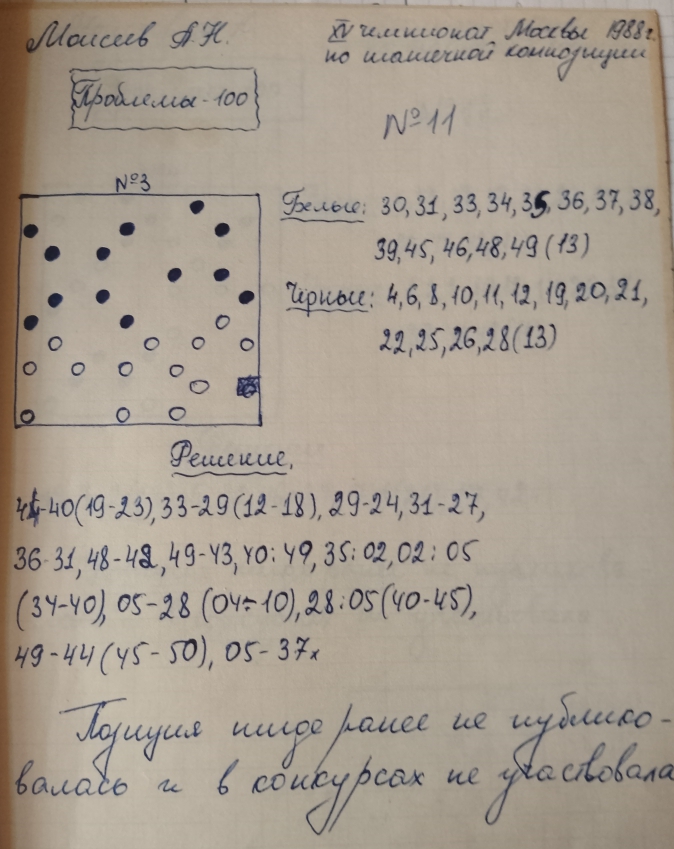 Моисеев А.Н.
XV чемпионат Москвы 1988г.
по шашечной композиции
Проблемы-100
№11
№3
Белые: 30, 31, 33, 34, 35, 36, 37, 38,
39, 45, 46, 48, 49 (13)
Чёрные: 4, 6, 8, 10, 11, 12, 19, 20, 21,
22, 25, 26, 28 (13)
Решение.
45-40 (19-23), 33-29 (12-18), 29-24, 31-27,
36-31, 48-42, 49-43, 40:49, 35:02, 02:05
(34-40), 05-28 (04-10), 28:05 (40-45),
49-44 (45-50), 05-37х
Позиция нигде ранее не публико-
валась и в конкурсах не участвовала